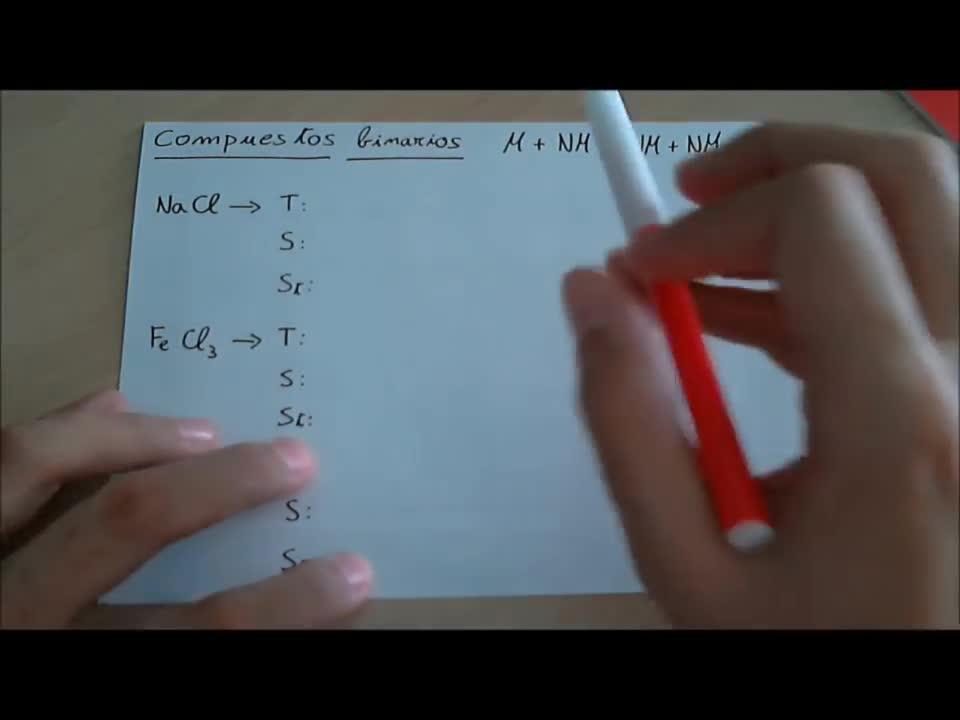 Compuestos binarios M + NM NM + NM
NaCl → T:
S:
St:
FeCl₃ → T:
S:
St:
S:
S